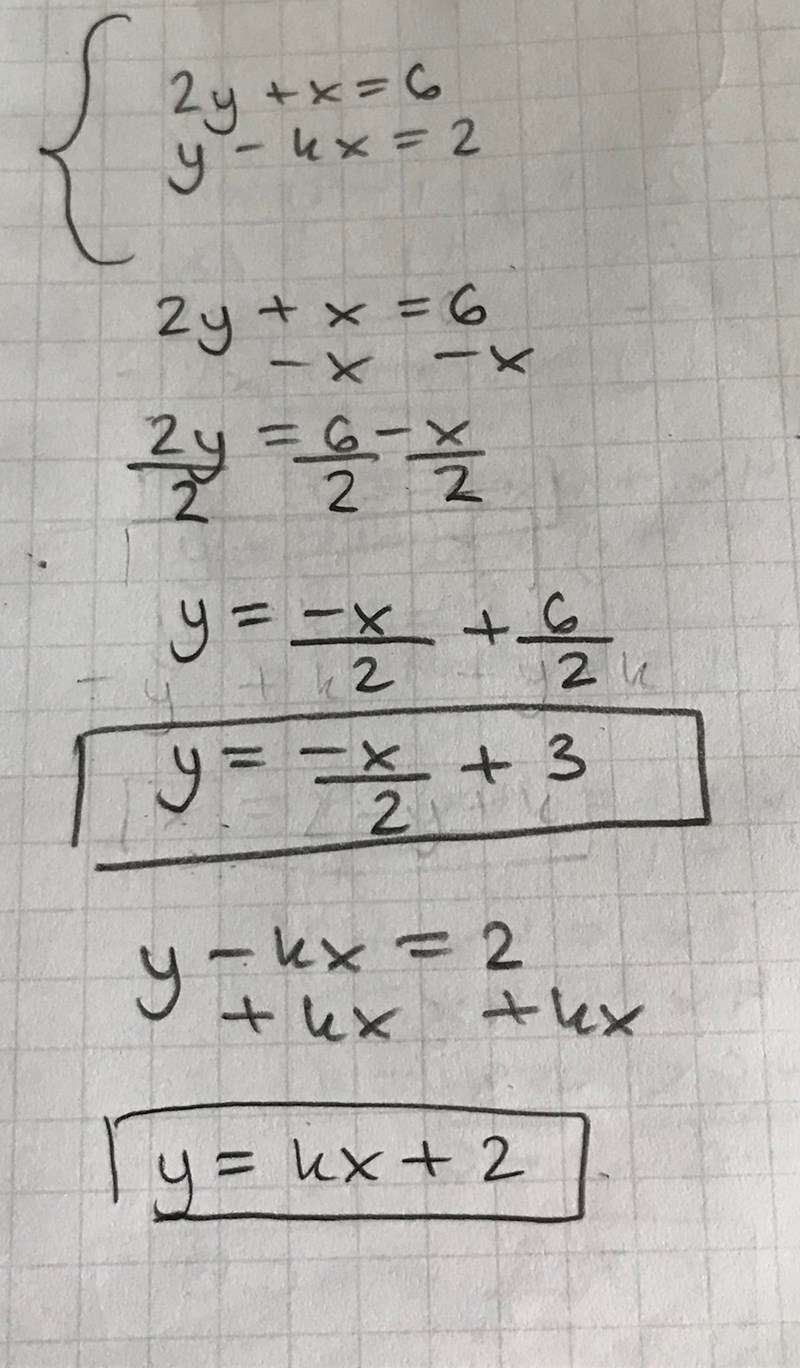 2y + x = 6
y - kx = 2
2y + x = 6
- x - x
2y/2 = 6/2 - x/2
y = -x/2 + 6/2
y = -x/2 + 3
y - kx = 2
+ kx + kx
y = kx + 2